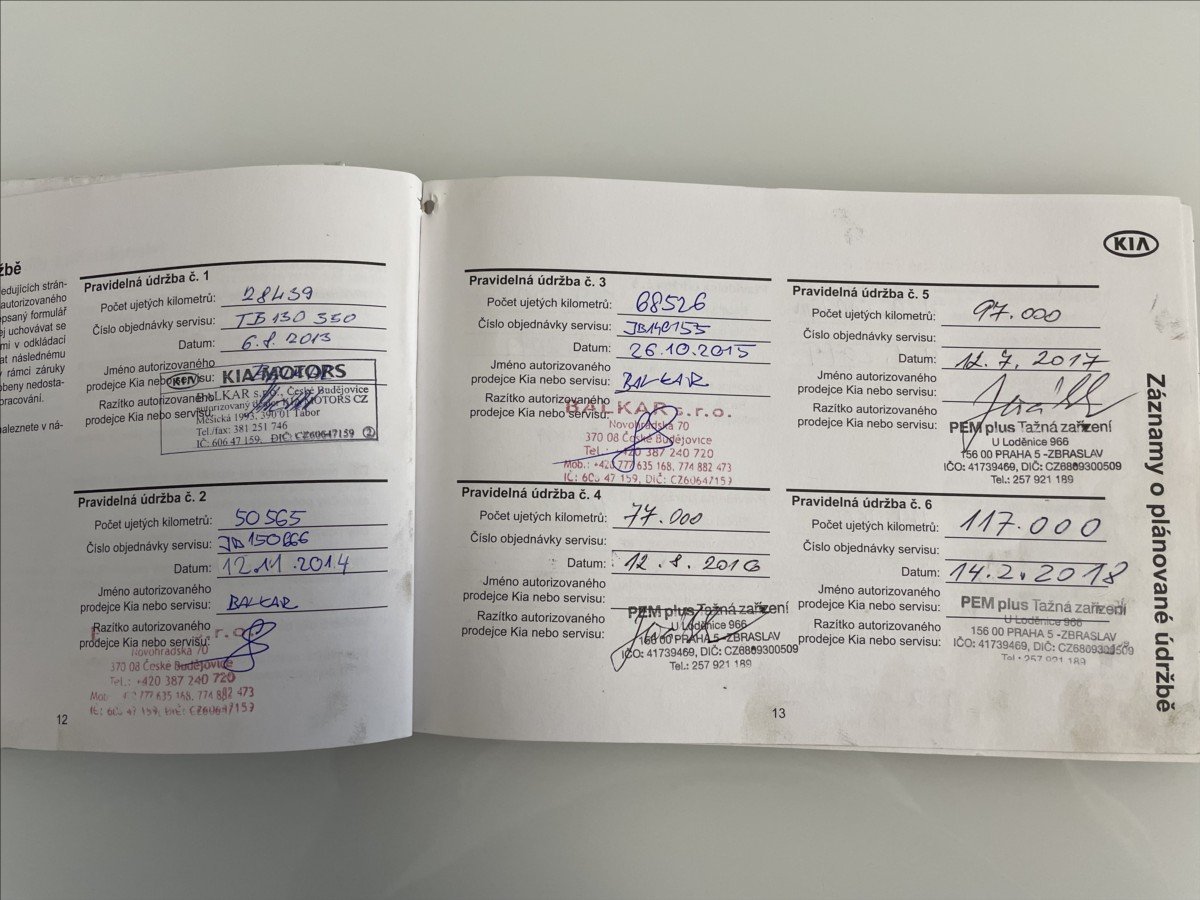 žbě
ledujících strán-
autorizovaného
epsaný formulář
ej uchovávat se
mi v odkládací
at následnému
v rámci záruky
obeny nedosta-
pracování.
naleznete v ná-
Pravidelná údržba č. 1
Počet ujetých kilometrů: 28439
Číslo objednávky servisu: JB 130 350
Datum: 6.8.2013
Jméno autorizovaného
prodejce Kia nebo servisu:
Razítko autorizovaného
prodejce Kia nebo servisu:
KIA KIA MOTORS
BALKAR s.r.o., České Budějovice
autorizovaný dealer KIA MOTORS CZ
Měšická 1993, 390 01 Tábor
Tel./fax: 381 251 746
IČ: 606 47 159, DIČ: CZ60647159 2
Pravidelná údržba č. 2
Počet ujetých kilometrů: 50565
Číslo objednávky servisu: JB 150666
Datum: 12.11.2014
Jméno autorizovaného
prodejce Kia nebo servisu: BALKAR
Razítko autorizovaného
prodejce Kia nebo servisu:
s.r.o.
Novohradská 70
370 08 České Budějovice
Tel.: +420 387 240 720
Mob. 777 635 168, 774 882 473
IČ: 606 47 159, DIČ: CZ60647159
12
KIA
Pravidelná údržba č. 3
Počet ujetých kilometrů: 68526
Číslo objednávky servisu: JB140153
Datum: 26.10.2015
Jméno autorizovaného
prodejce Kia nebo servisu: BALKAR
Razítko autorizovaného
prodejce Kia nebo servisu:
BALKAR s.r.o.
Novohradská 70
370 08 České Budějovice
Tel.: +420 387 240 720
Mob.: +420 777 635 168, 774 882 473
IČ: 606 47 159, DIČ: CZ60647159
Pravidelná údržba č. 4
Počet ujetých kilometrů: 77.000
Číslo objednávky servisu:
Datum: 12.8.2016
Jméno autorizovaného
prodejce Kia nebo servisu:
Razítko autorizovaného
prodejce Kia nebo servisu:
PEM plus Tažná zařízení
U Loděnice 966
156 00 PRAHA 5 -ZBRASLAV
IČO: 41739469, DIČ: CZ6809300509
Tel.: 257 921 189
Pravidelná údržba č. 5
Počet ujetých kilometrů: 97.000
Číslo objednávky servisu:
Datum: 12.7.2017
Jméno autorizovaného
prodejce Kia nebo servisu:
Razítko autorizovaného
prodejce Kia nebo servisu:
PEM plus Tažná zařízení
U Loděnice 966
156 00 PRAHA 5 -ZBRASLAV
IČO: 41739469, DIČ: CZ6809300509
Tel.: 257 921 189
Pravidelná údržba č. 6
Počet ujetých kilometrů: 117.000
Číslo objednávky servisu:
Datum: 14.2.2018
Jméno autorizovaného
prodejce Kia nebo servisu:
Razítko autorizovaného
prodejce Kia nebo servisu:
PEM plus Tažná zařízení
U Loděnice 966
156 00 PRAHA 5 -ZBRASLAV
IČO: 41739469, DIČ: CZ6809300509
Tel.: 257 921 189
Záznamy o plánované údržbě
13